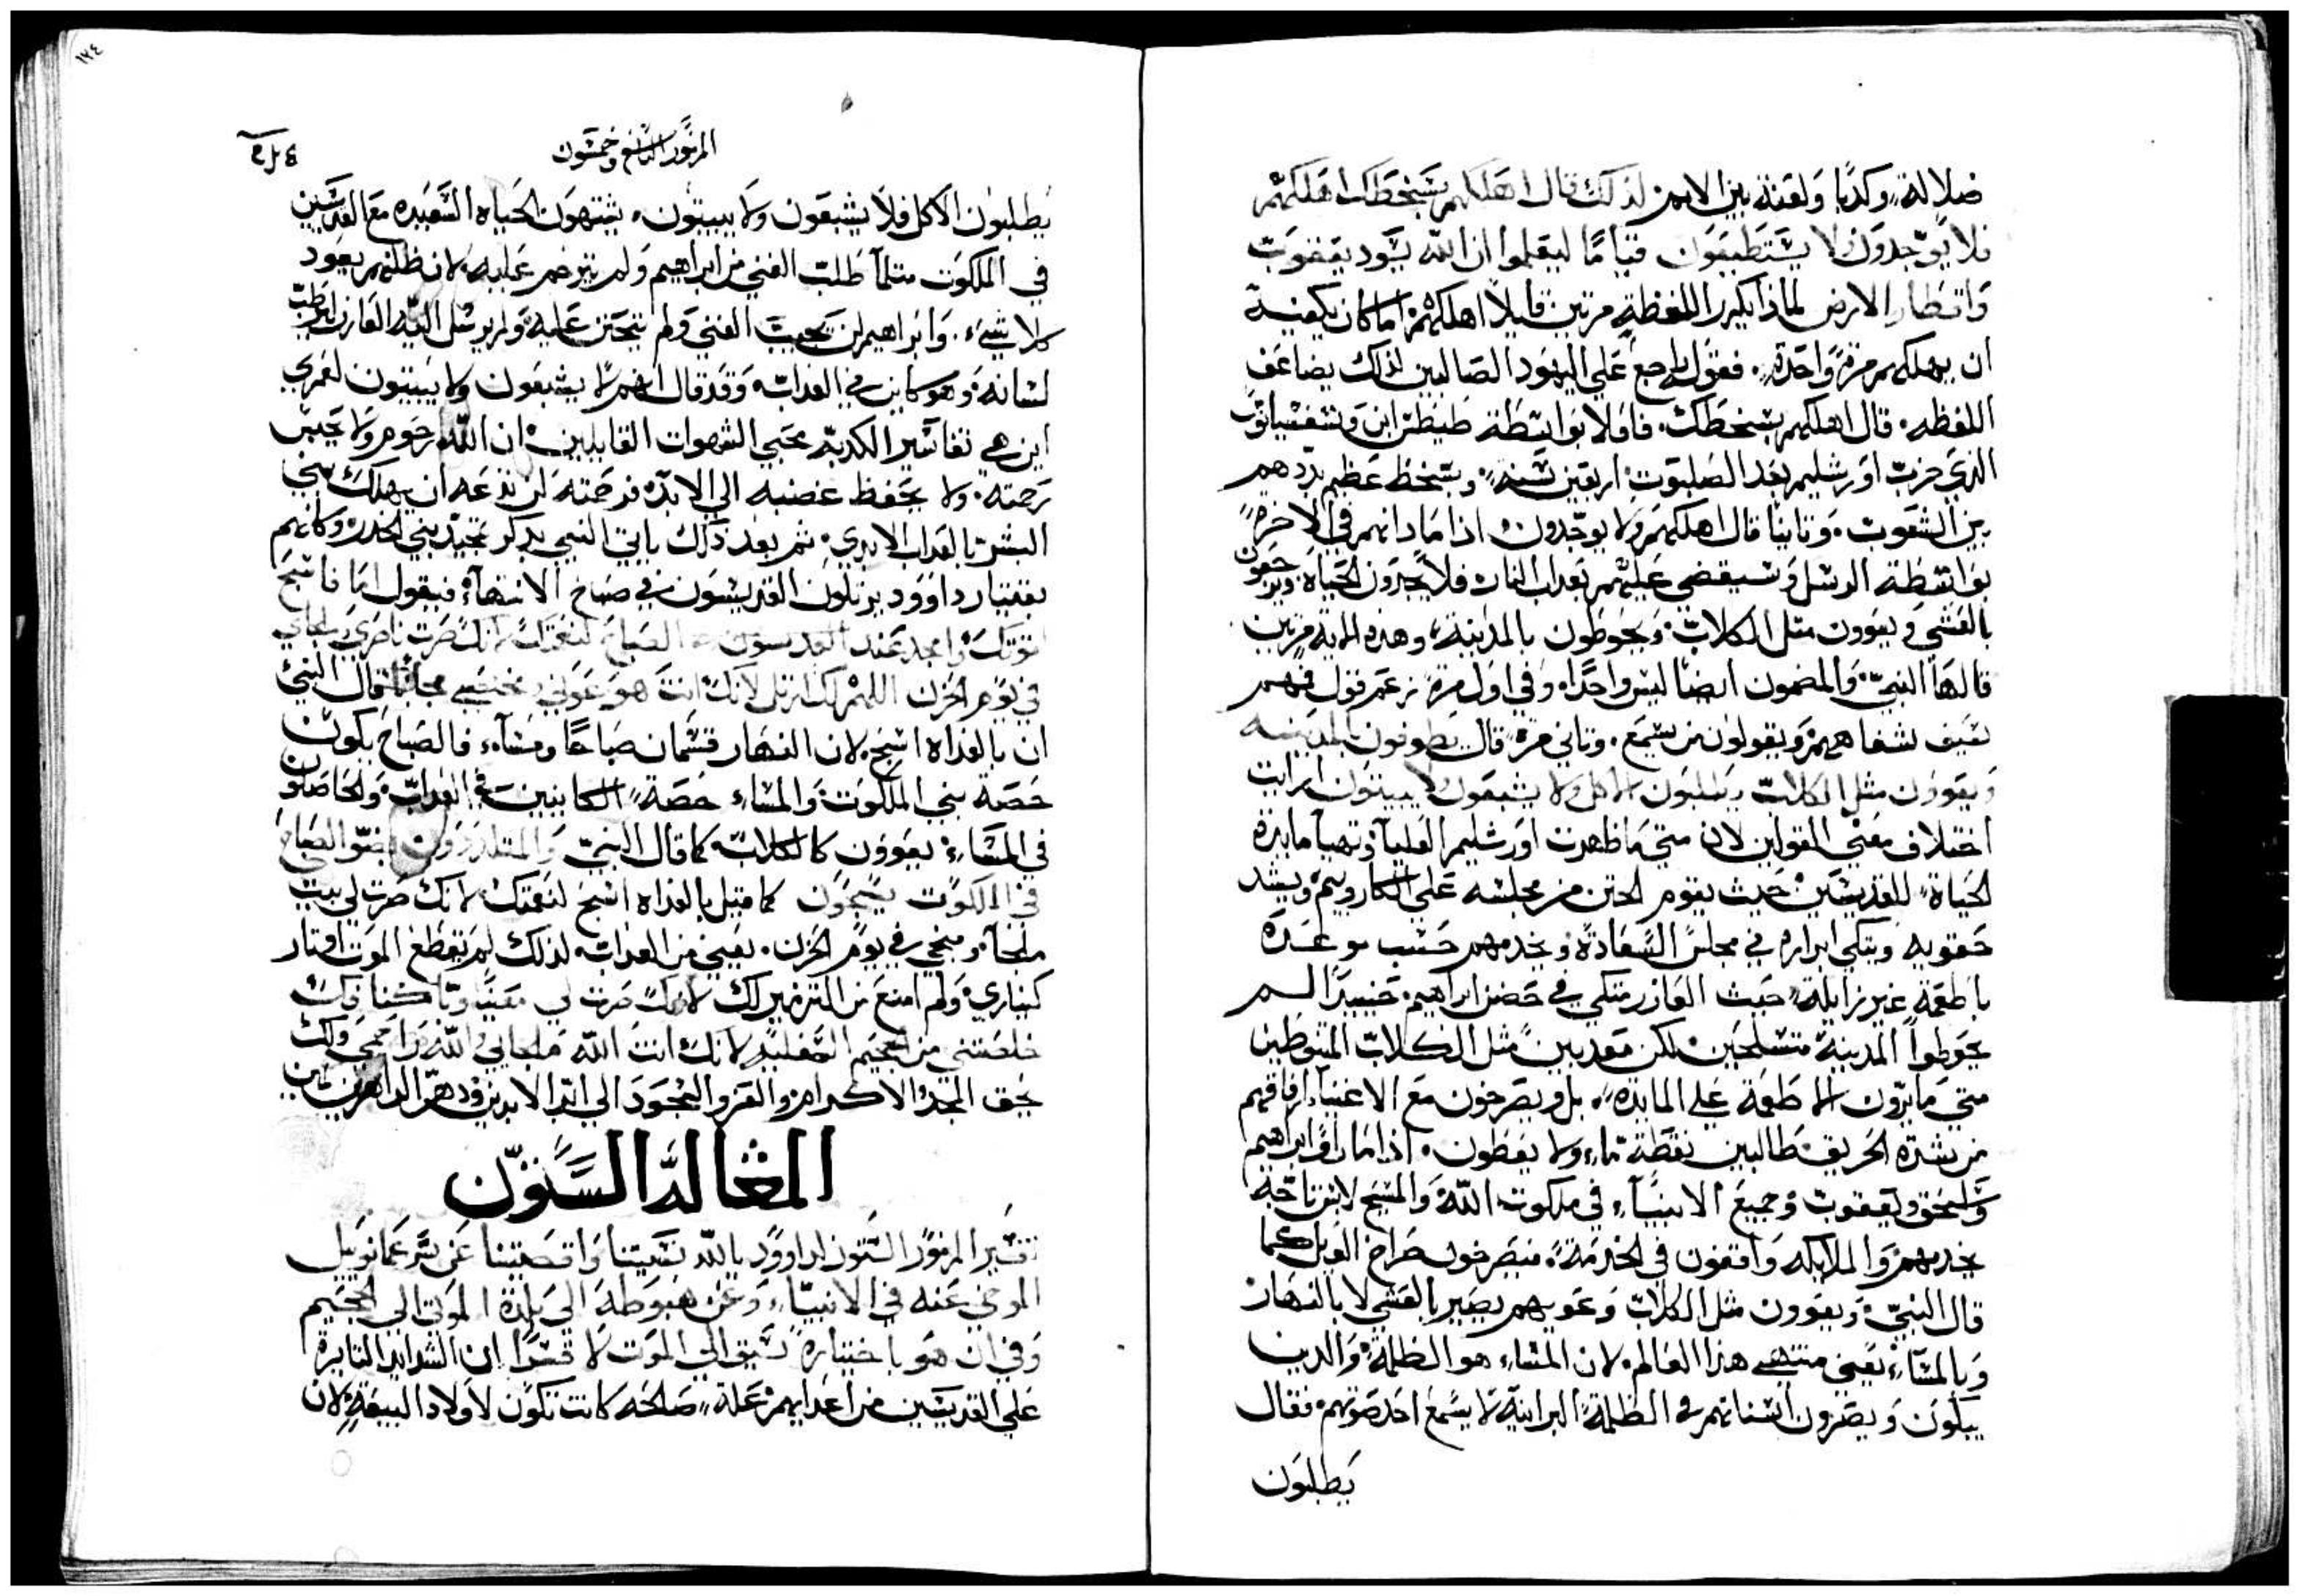 ضلالة وكدبًا ولعنة بين الامم لذلك قال اهلكهم بسخطك اهلكهم
فلا يوجدون لا يستطيعون قيامًا ليعلموا ان الله يسود يعقوب
واقطار الارض لماذا يكرر اللفظة مرتين قايلًا اهلكهم اما كان يكفيه
ان يهلكهم مرة واحدة. فقول راجع على اليهود الصالبين لذلك يضاعف
اللفظه. قال اهلكهم بسخطك. فاولا بواسطة طيطس ابن وسفسيانوس
الذي خرب اورشليم بعد الصلبوت اربعين سنة. وبسخط عظيم بددهم
بين الشعوب. وثانيًا قال اهلكهم ولا يوجدون اذا ما دانهم في الاخرة
بواسطة الرسل وسيقضى عليهم بعداب النار فلا يجدون الحياة ويرجعون
بالعشي ويعوون مثل الكلاب. ويحوطون بالمدينة. وهذه الاية مرتين
قالها النبي. والمضمون ايضًا ليس واحدًا. وفي اول مرة زعم فول فمهم
بشفاههم ويقولون من يسمع. وثاني مرة قال يطوفون بالمدينه
ويعوون مثل الكلاب يطلبون الاكل ولا يشبعون لا يبيتون ارايت
اختلاف معنى القولين لان متى ما ظهرت اورشليم العليا وتهيا مايدة
الحياة للقديسين حيث يقوم الختن من مجلسه على الكاروبيم ويشد
حقويه ويتكي ابراره في مجلس السعادة ويخدمهم حسب موعده
باطعمة غير زايلة حيث العازر متكي في حضن ابراهيم. حينيدًا لم
يحوطوا المدينة متسلحين لكن معدبين مثل الكلاب المتوطين
متى ما يرون الاطعمة على المايده. بل ويصرخون مع الاغنيا رفاقهم
من شدة الحريق طالبين نقطة ماء ولا يعطون. اذا ما راوا ابراهيم
واسحق ويعقوب وجميع الانبياء في ملكوت الله والمسيح لابس تاجه
يخدمهم والملايكه واقفون في الخدمة. فيصرخون صراخ الويل كما
قال النبي. ويعوون مثل الكلاب وعويهم يصير بالعشي لا بالنهار
وبالمساء يعني منتهى هذا العالم. لان المساء هو الظلمة. والدين
يبكون ويصرون اسنانهم في الظلمة البرانية لا يسمع احد صوتهم. فقال
يطلبون
١٧٤
المزمور التاسع وخمسون
يطلبون الاكل فلا يشبعون ولا يبيتون. يشتهون الحياه السعيده مع القديسين
في الملكوت مثلما طلب الغني من ابراهيم ولم يترحم عليه. لان ظلمهم يعود
كلا شيء. وابراهيم لن يجيب الغني ولم يتحنن عليه ولم يرسل اليه العازر ليرطب
لسانه وهو كاين في العداب. وقد قال انهم لا يشبعون ولا يبيتون لعمري
اين هي تفاسير الكدبة محبي الشهوات القايلين. ان الله رحوم ولا يحبس
رحمته. ولا يحفظ غضبه الى الابد. فرحمته لن تدعه ان يهلك بني
البشر بالعداب الابدي. ثم بعد ذلك ياتي النبي يدكر تمجيد بني الخدر وكانهم
بقيتار داوود يرتلون القديسون في صباح الانتهاء فيقول اما انا فاسبح
قوتك وامجد عند الصباح لنعمتك لانك صرت ناصري وملجاي
في يوم الحزن اللهم لك ارتل لانك انت هو عوني ومخلصي مجانًا قال النبي
ان بالغداه اسبح. لان النهار قسمان صباحًا ومساء. فالصباح يكون
حصة بني الملكوت. والمساء حصة الكاينين في العداب. والحاصلون
في المساء يعوون كالكلاب. كما قال النبي والمتلددون بضو الصباح
في الملكوت يسبحون كما قيل بالغداه اسبح لنعمتك لانك صرت لي بيت
ملجاء ومنجي في يوم الحزن. يعني من العداب. لذلك لم تقطع الموت اوتار
كيناري. ولم امنع من الترنيم لك لانك صرت لي معينًا وتاكنا فيك
خلصتني من الجحيم السفلية لانك انت الله ملجاي والله مراحمي ولك
يحق المجد والاكرام والعز والسجود الى ابد الابدين ودهر الداهرين امين
المقالة الستون
تفسير المزمور الستون لداوود يا الله نسيتنا واقصيتنا عن سر عمانوييل
الموحي عنه في الانبياء وعن هبوطه الى بلدة الموتى الى الجحيم
وفي ان هو باختياره سيق الى الموت لا قسرًا ان الشدايد الثايرة
على القديسين من اعدايهم علة صالحه كانت تكون لاولاد البيعة لان